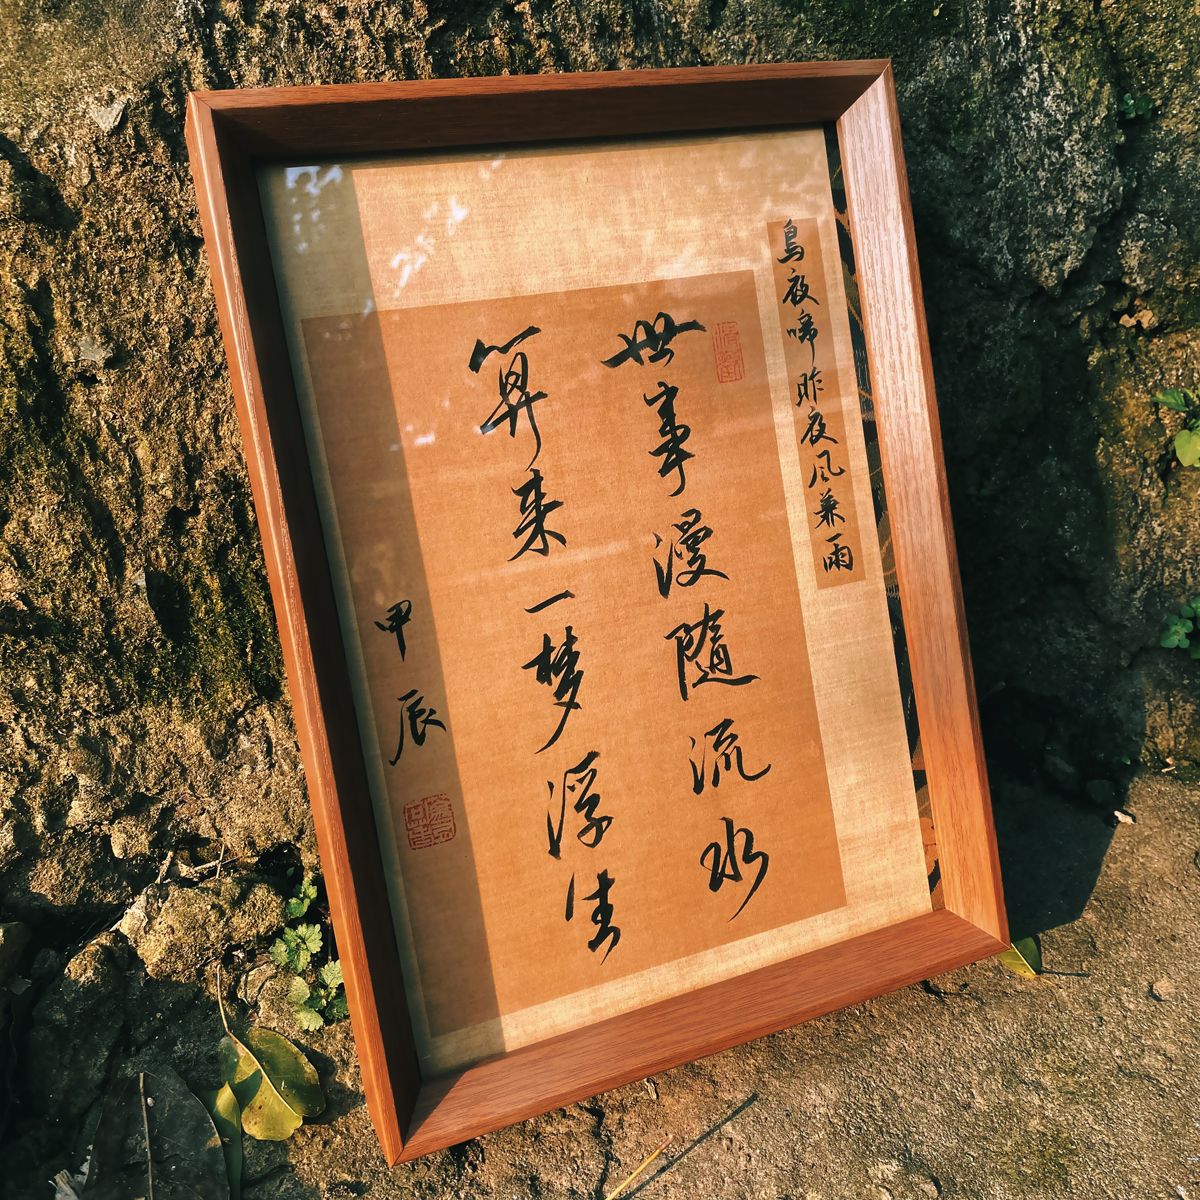 烏夜啼昨夜风兼雨
世事漫隨流水
算来一梦浮生
甲辰